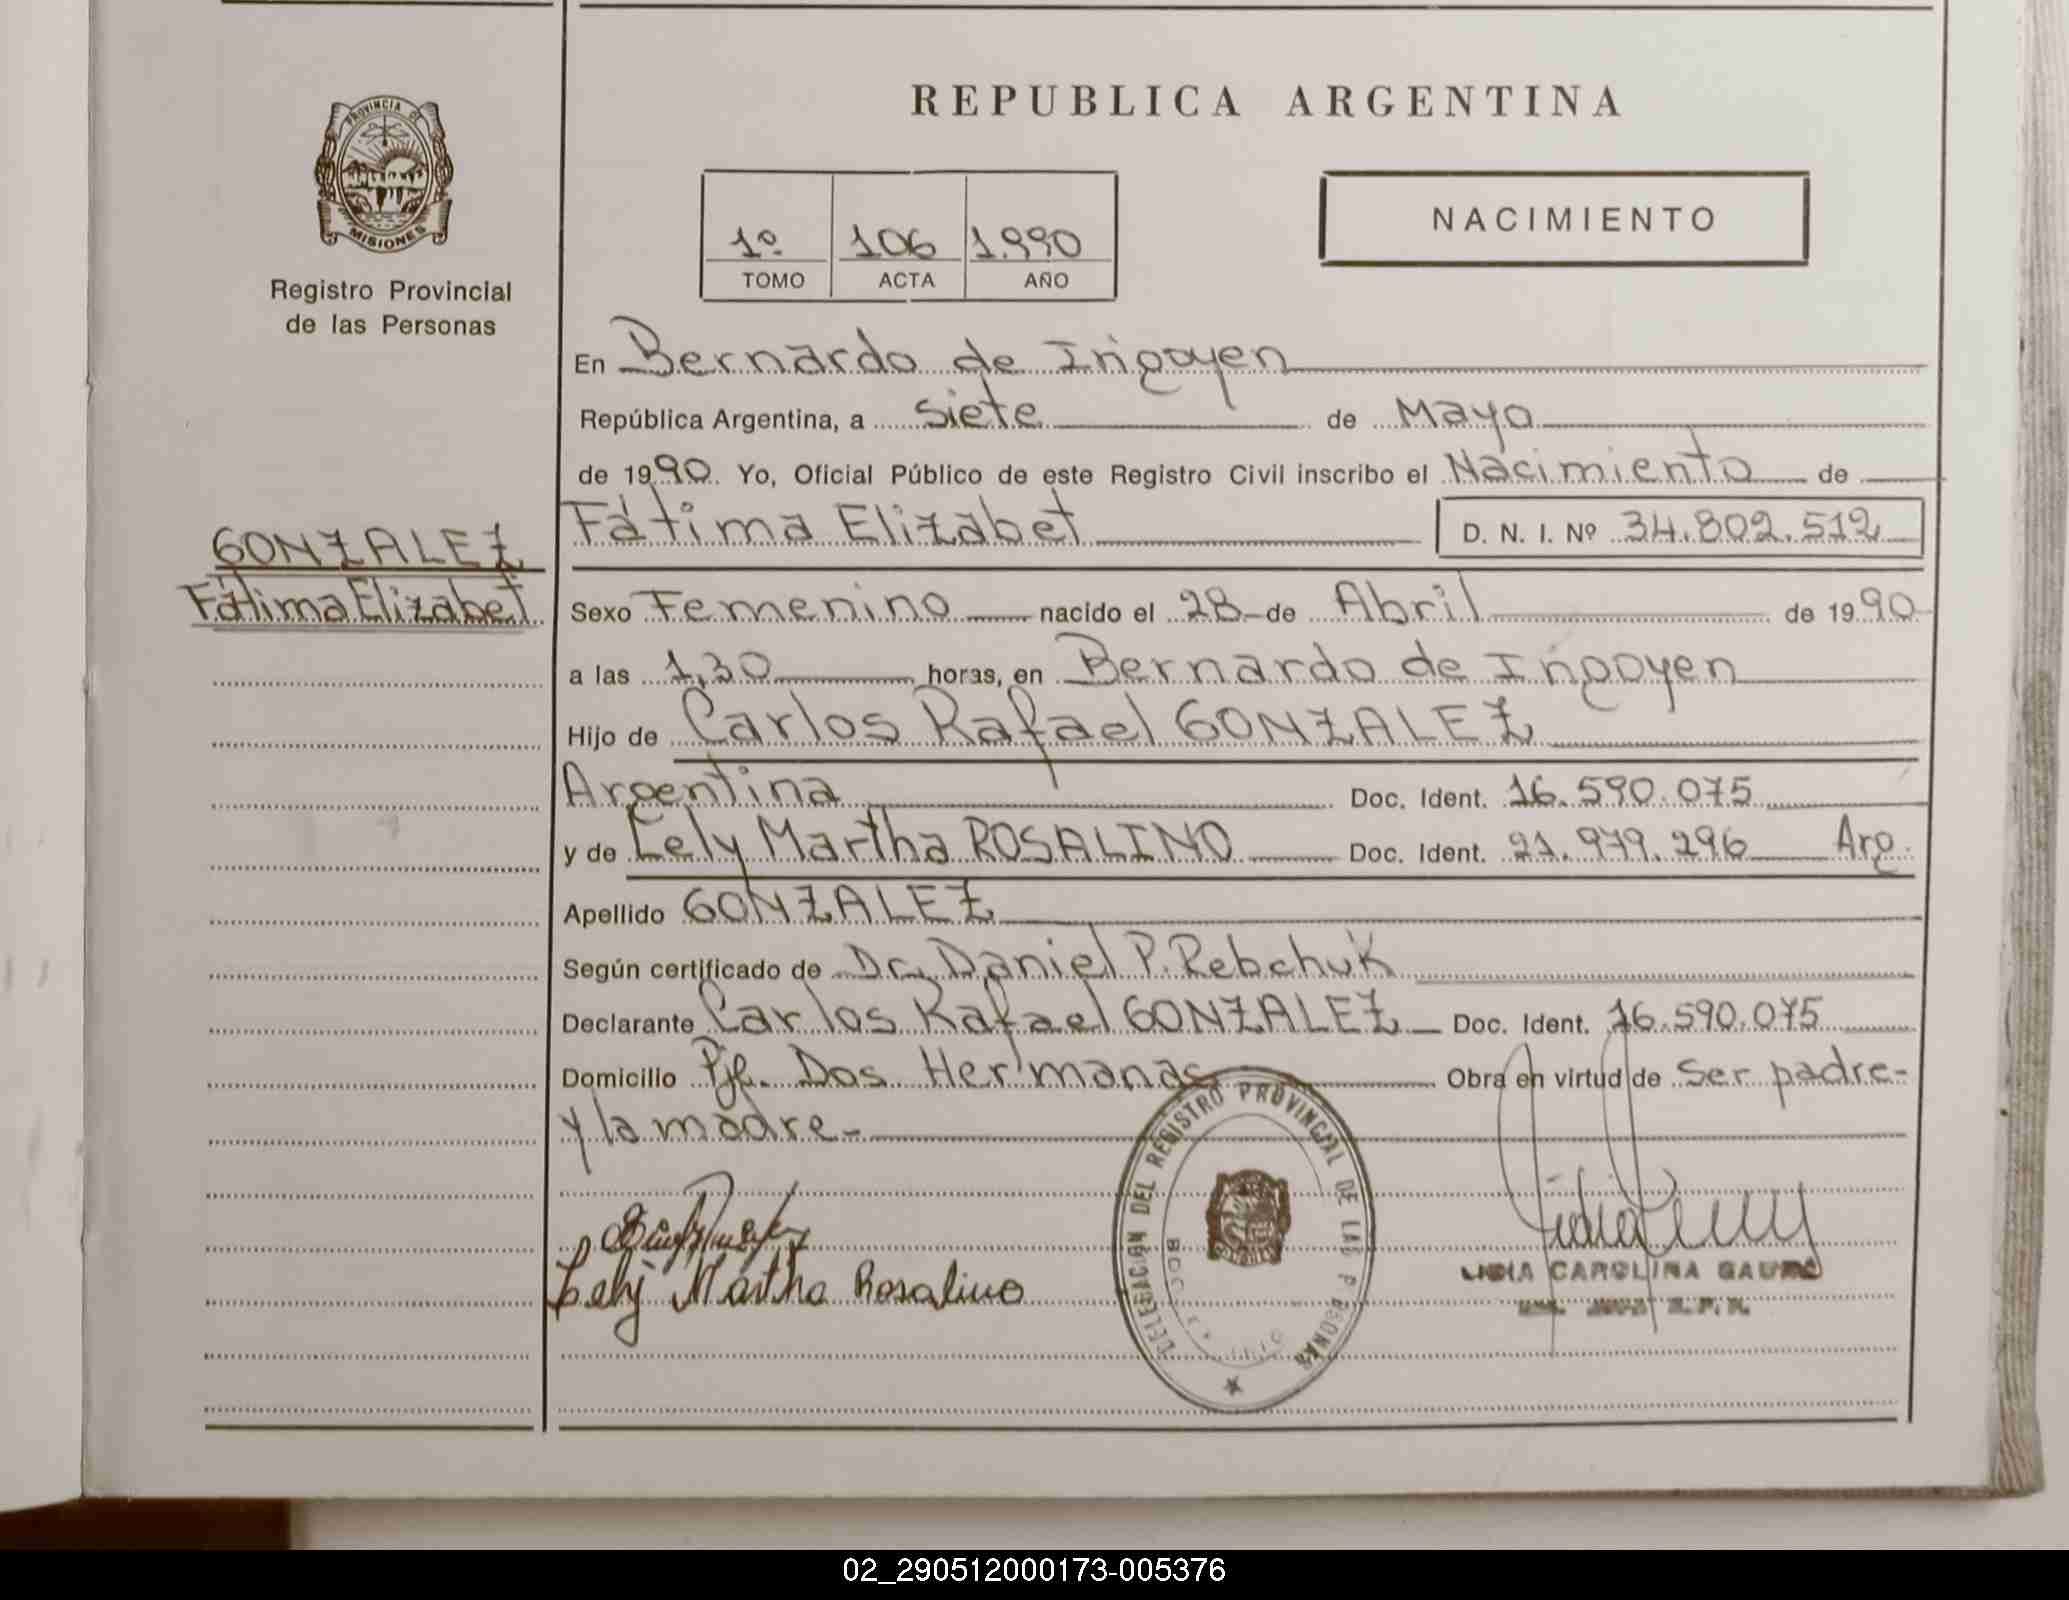 REPUBLICA ARGENTINA
PROVINCIA DE
MISIONES
Registro Provincial
de las Personas
1º 106 1.990
TOMO ACTA AÑO
NACIMIENTO
En Bernardo de Irigoyen
República Argentina, a siete de Mayo
de 1990. Yo, Oficial Público de este Registro Civil inscribo el Nacimiento de
GONZALEZ
Fátima Elizabet
Fátima Elizabet D. N. I. Nº 34.802.512
Sexo Femenino nacido el 28 de Abril de 1990
a las 1,30 horas, en Bernardo de Irigoyen
Hijo de Carlos Rafael GONZALEZ
Argentina Doc. Ident. 16.590.075
y de Lely Martha ROSALINO Doc. Ident. 21.979.296 Arg.
Apellido GONZALEZ
Según certificado de Dr. Daniel P. Rebchuk
Declarante Carlos Rafael GONZALEZ Doc. Ident. 16.590.075
Domicilio Pje. Dos Hermanas Obra en virtud de Ser padre-
y la madre-
DELEGACION DEL REGISTRO PROVINCIAL DE LAS PERSONAS
Lely Martha Rosalino
LIDIA CAROLINA